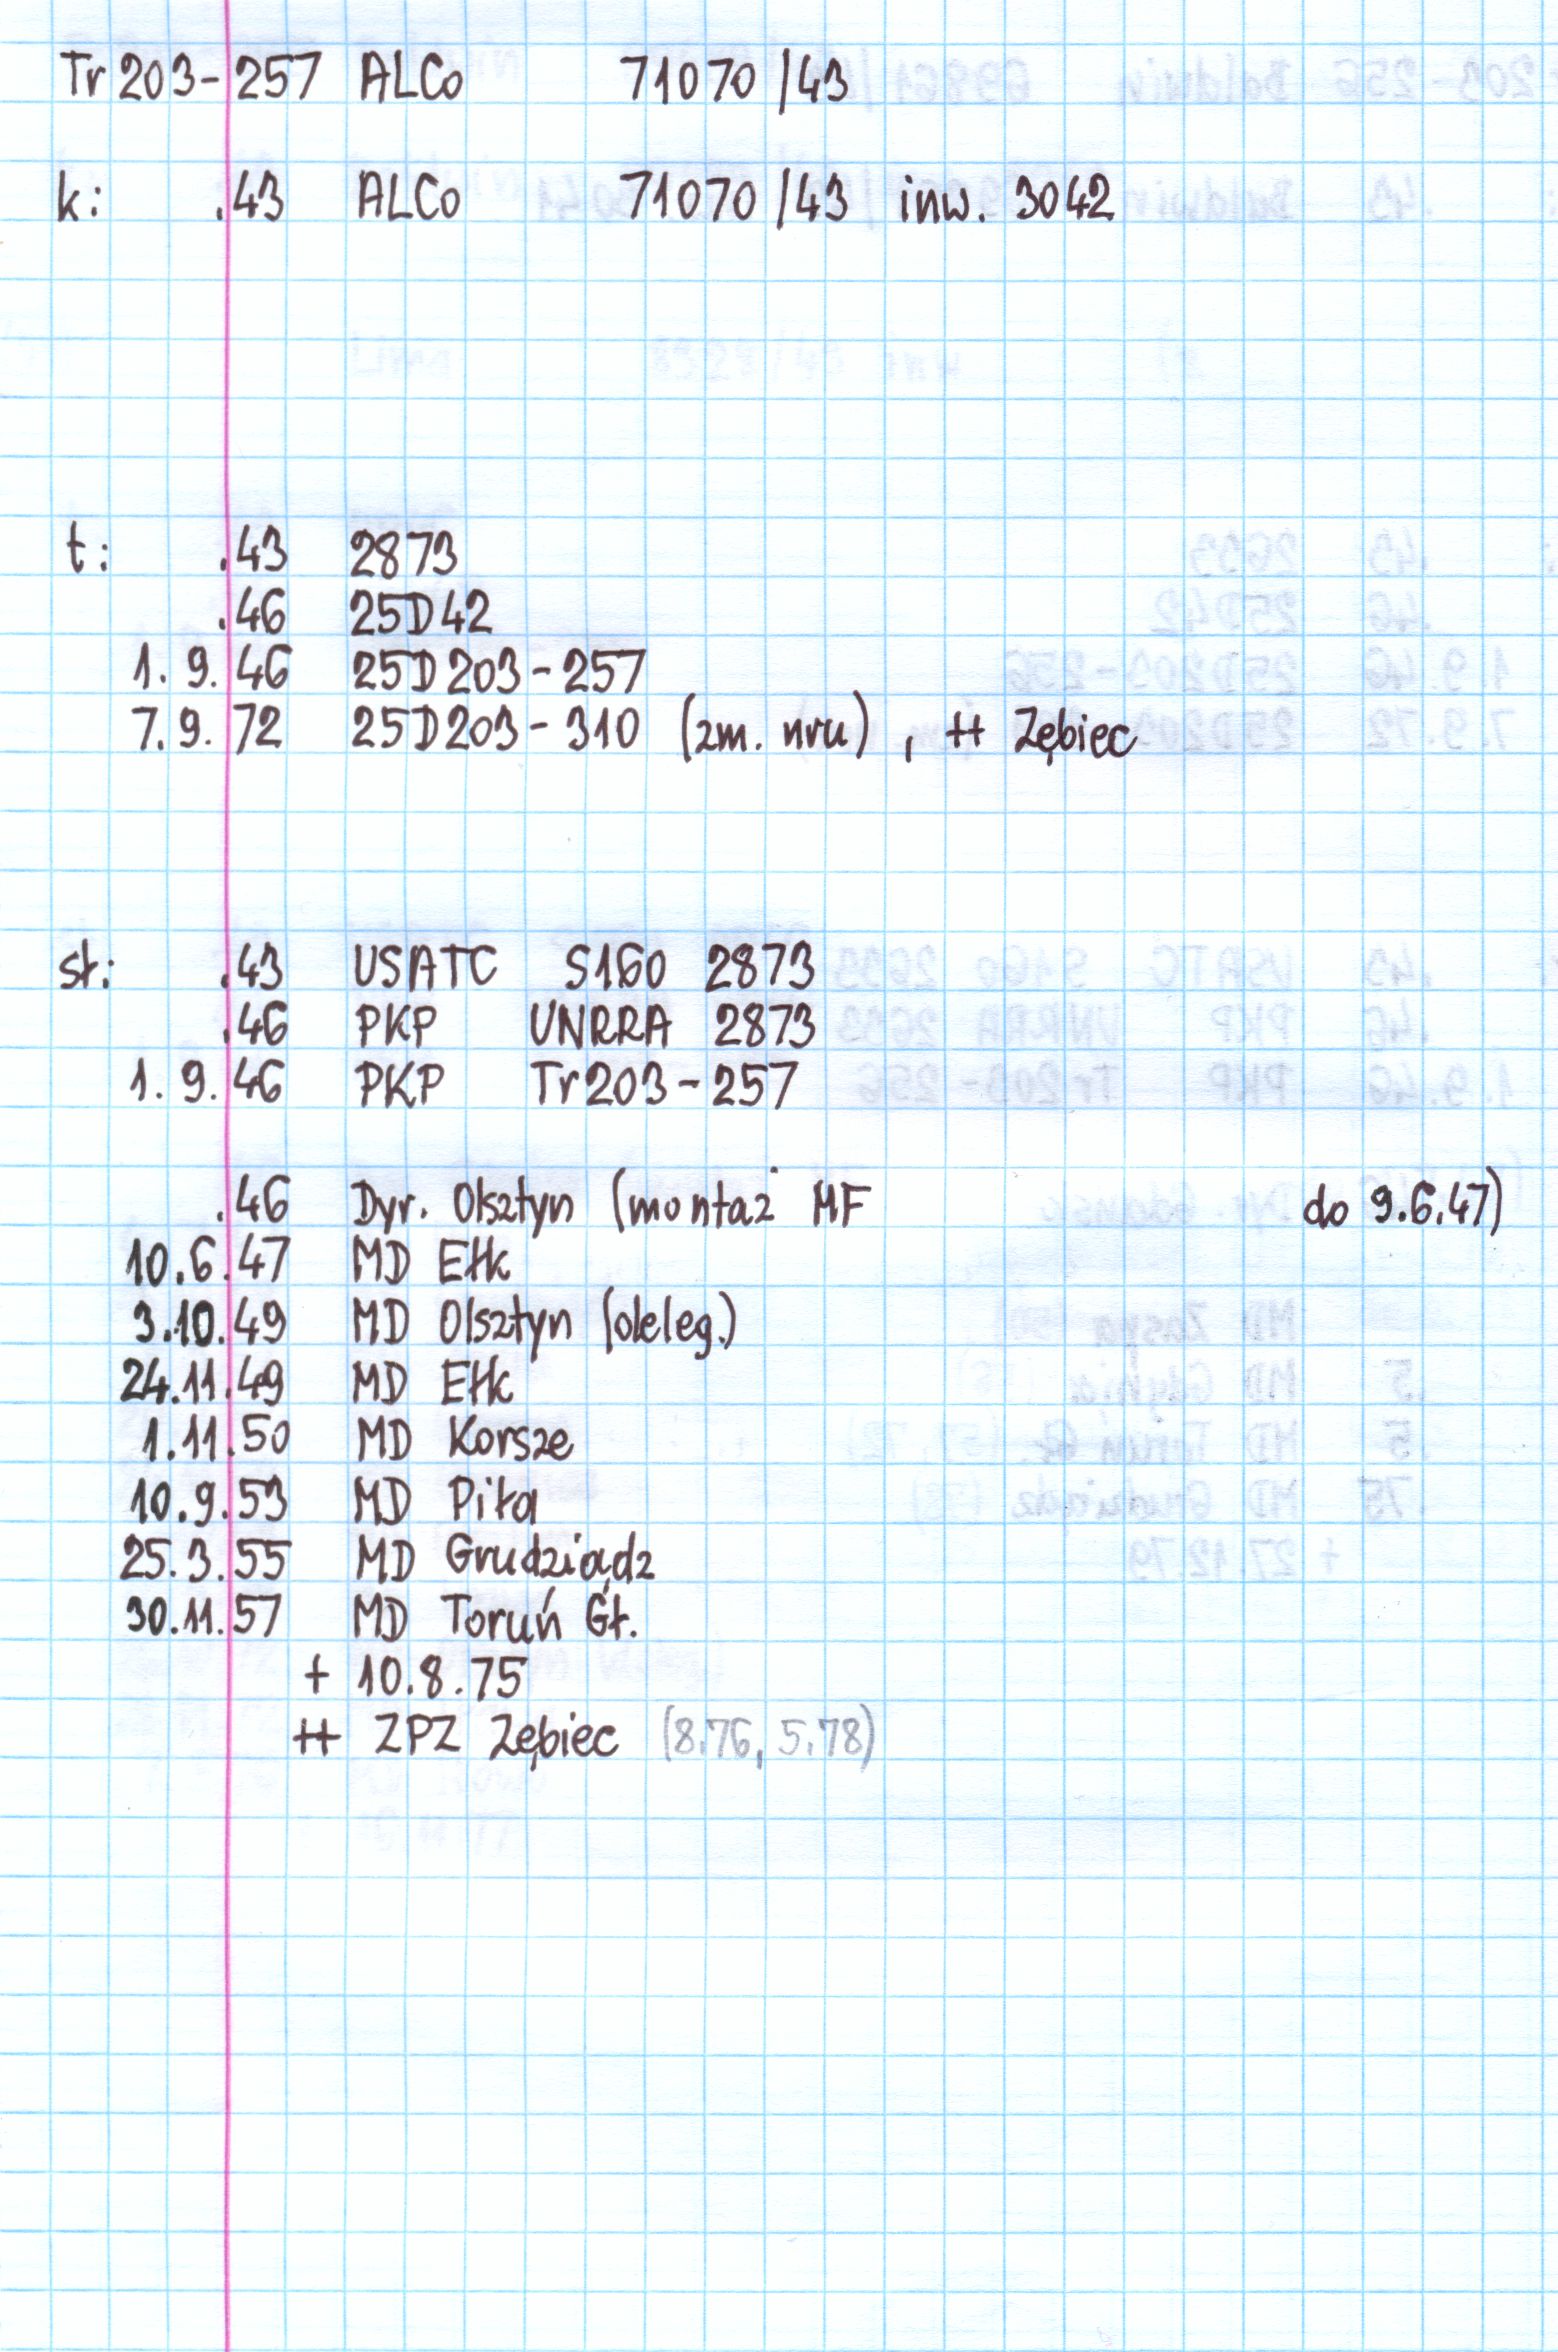 Tr 203-257 ALCo 71070/43
k: .43 ALCo 71070/43 inw. 3042
t: .43 2873
.46 25D42
1.9.46 25D203-257
7.9.72 25D203-310 (zm. nru), ++ Zębiec
st: .43 USATC S160 2873
.46 PKP UNRRA 2873
1.9.46 PKP Tr203-257
.46 Dyr. Olsztyn (montaż MF do 9.6.47)
10.6.47 MD Ełk
3.10.49 MD Olsztyn (deleg.)
24.11.49 MD Ełk
1.11.50 MD Korsze
10.9.53 MD Piła
25.3.55 MD Grudziądz
30.11.57 MD Toruń Gł.
+ 10.8.75
++ ZPZ Zębiec (8.76, 5.78)